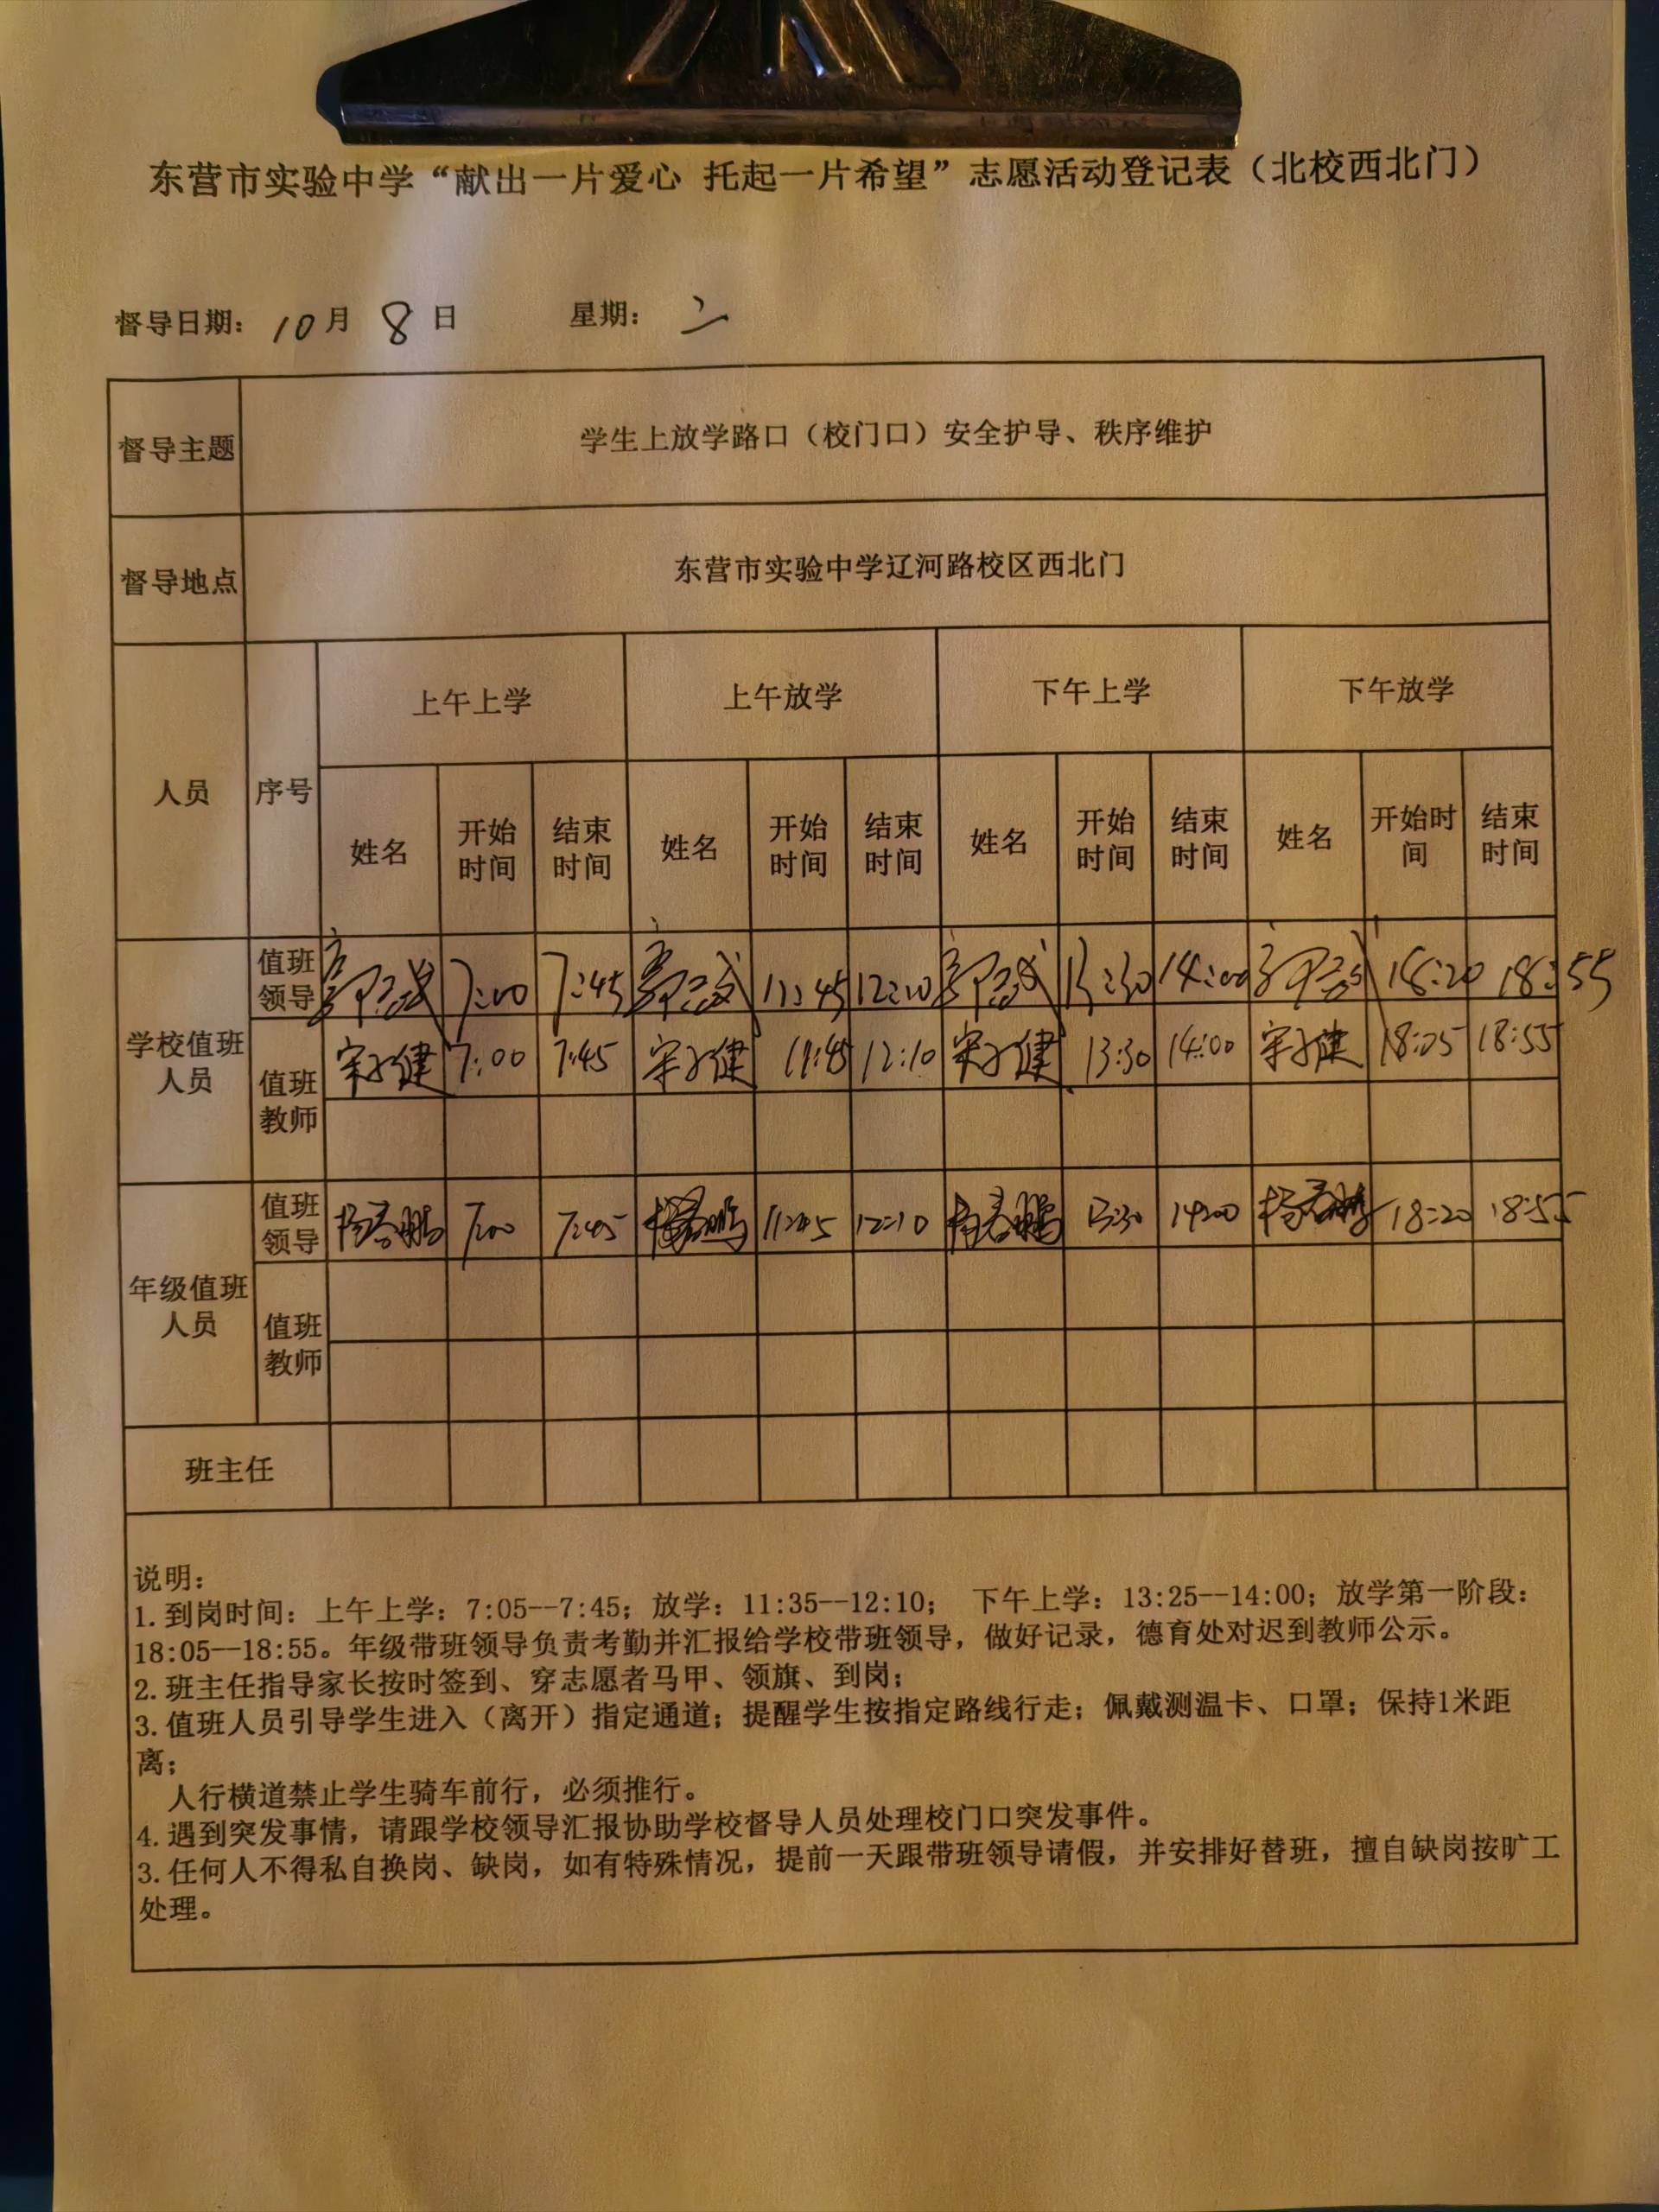 东营市实验中学“献出一片爱心 托起一片希望”志愿活动登记表（北校西北门）
督导日期： 10 月 8 日 星期： 二
督导主题 学生上放学路口（校门口）安全护导、秩序维护
督导地点 东营市实验中学辽河路校区西北门
人员 序号 上午上学 上午放学 下午上学 下午放学
姓名 开始时间 结束时间 姓名 开始时间 结束时间 姓名 开始时间 结束时间 姓名 开始时间 结束时间
学校值班人员 值班领导 7:00 7:45 11:45 12:10 13:30 14:00 18:20 18:55
值班教师 宋子健 7:00 7:45 宋子健 11:45 12:10 宋子健 13:30 14:00 宋子健 18:05 18:55
年级值班人员 值班领导 杨春鹏 7:00 7:45 杨春鹏 11:45 12:10 杨春鹏 13:30 14:00 杨春鹏 18:20 18:55
值班教师
班主任
说明：
1.到岗时间：上午上学：7:05--7:45；放学：11:35--12:10； 下午上学：13:25--14:00；放学第一阶段：
18:05--18:55。年级带班领导负责考勤并汇报给学校带班领导，做好记录，德育处对迟到教师公示。
2.班主任指导家长按时签到、穿志愿者马甲、领旗、到岗；
3.值班人员引导学生进入（离开）指定通道；提醒学生按指定路线行走；佩戴测温卡、口罩；保持1米距
离；
人行横道禁止学生骑车前行，必须推行。
4.遇到突发事情，请跟学校领导汇报协助学校督导人员处理校门口突发事件。
3.任何人不得私自换岗、缺岗，如有特殊情况，提前一天跟带班领导请假，并安排好替班，擅自缺岗按旷工
处理。